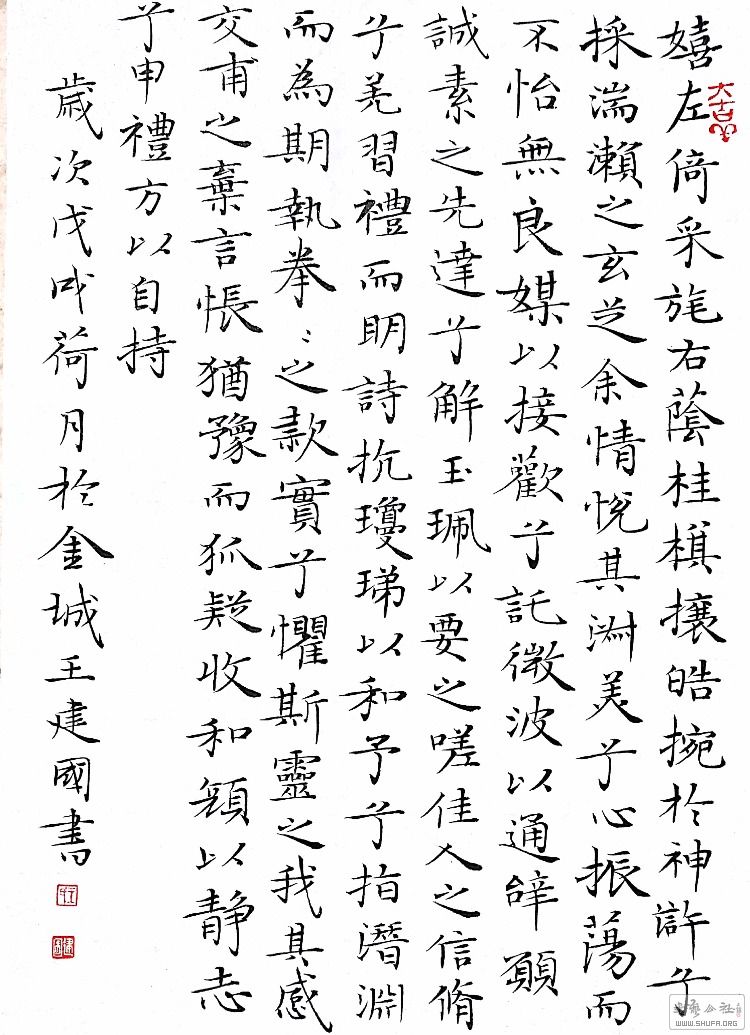 嬉左倚采旄右蔭桂棋攘皓捥於神滸兮
採湍瀨之玄芝余情悅其淑美兮心振蕩而
不怡無良媒以接歡兮託微波以通辝願
誠素之先達兮解玉珮以要之嗟佳人之信脩
兮羌習禮而明詩抗瓊珶以和予兮指潛淵
而為期執拳〻之款實兮懼斯靈之我其感
交甫之棄言悵猶豫而狐疑收和顏以靜志
兮申禮方以自持
歲次戊戌荷月於金城王建國書
WWW.SHUFA.ORG